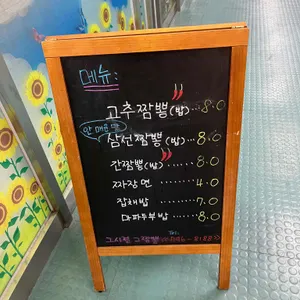 메뉴:
고추짬뽕(밥)... 8.0
안 매운 맛
삼선짬뽕(밥)... 8.0
간짬뽕(밥)... 8.0
짜장면 ... 4.0
잡채밥 ... 7.0
마파두부밥 ... 8.0
그시절 그짬뽕
Tel.